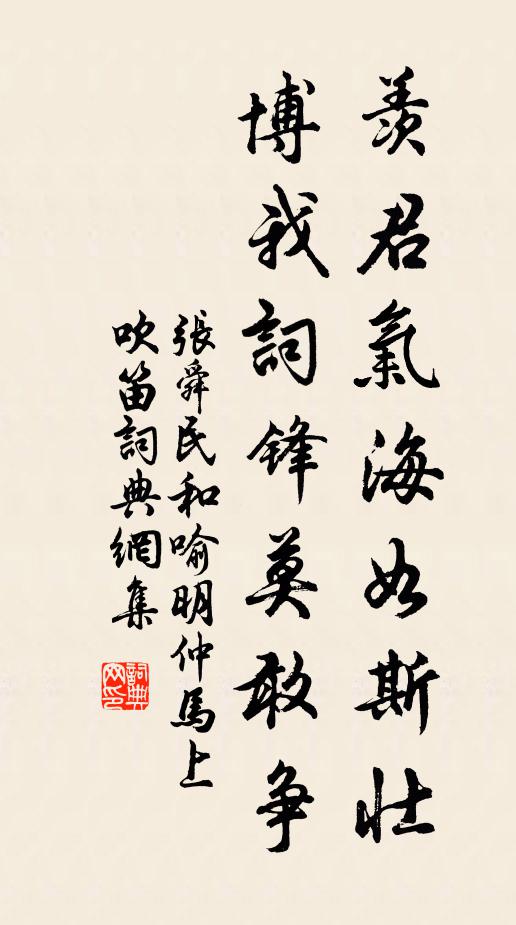 羨君氣海如斯壯
博我詞鋒莫敢争
張舜民和喻明仲馬上
吹笛詞典網集
詞典
网印